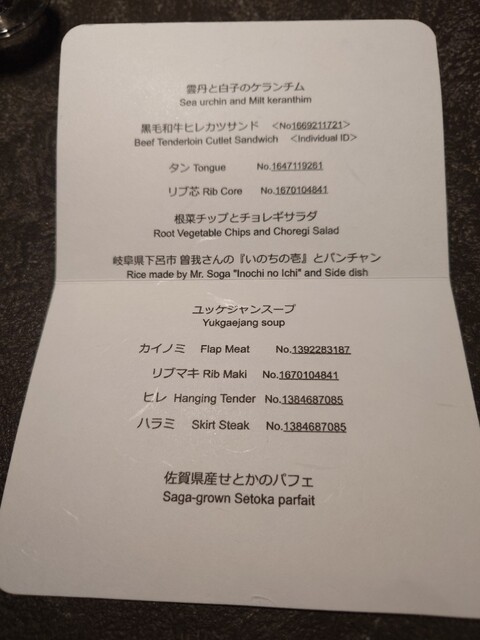 雲丹と白子のケランチム
Sea urchin and Milt keranthim
黒毛和牛ヒレカツサンド <No1669211721>
Beef Tenderloin Cutlet Sandwich <Individual ID>
タン Tongue No.1647119261
リブ芯 Rib Core No.1670104841
根菜チップとチョレギサラダ
Root Vegetable Chips and Choregi Salad
岐阜県下呂市 曽我さんの『いのちの壱』とバンチャン
Rice made by Mr. Soga "Inochi no Ichi" and Side dish
ユッケジャンスープ
Yukgaejang soup
カイノミ Flap Meat No.1392283187
リブマキ Rib Maki No.1670104841
ヒレ Hanging Tender No.1384687085
ハラミ Skirt Steak No.1384687085
佐賀県産せとかのパフェ
Saga-grown Setoka parfait